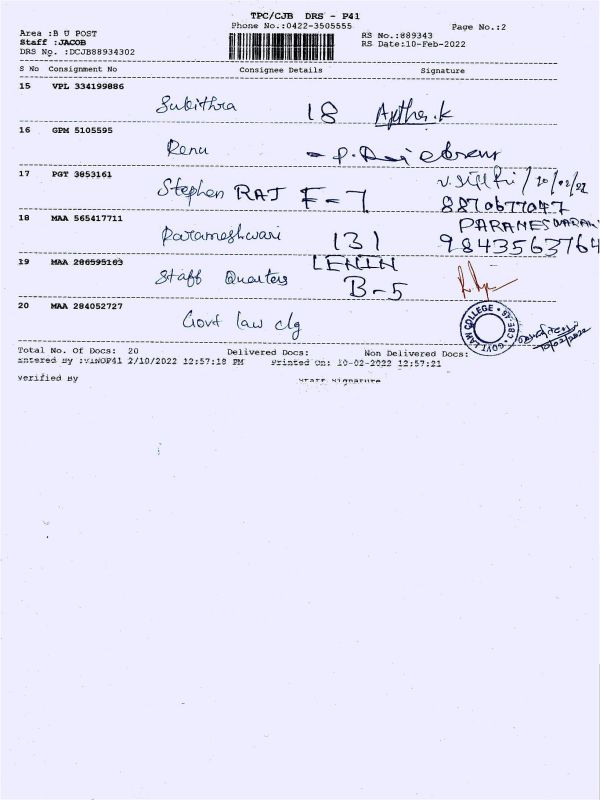 TPC/CJB DRS - P41
Phone No.:0422-3505555 Page No.:2
Area :B U POST
Staff :JACOB
DRS No. :DCJB88934302
RS No.:889343
RS Date:10-Feb-2022
S No Consignment No Consignee Details Signature
15 VPL 334199886
Sukithra 18
16 GPM 5105595
Renu
17 PGT 3853161
Stephen RAJ F-7 10/02/22
8870677047
18 MAA 565417711
Parameshwari 131 9843563764
19 MAA 286595163 LENIN
Staff Quarters B-5
20 MAA 284052727
Govt law clg
GOVT LAW COLLEGE CBE-46
10/02/2022
Total No. Of Docs: 20 Delivered Docs: Non Delivered Docs:
Entered By :VINOP41 2/10/2022 12:57:18 PM Printed On: 10-02-2022 12:57:21
Verified By Staff Signature